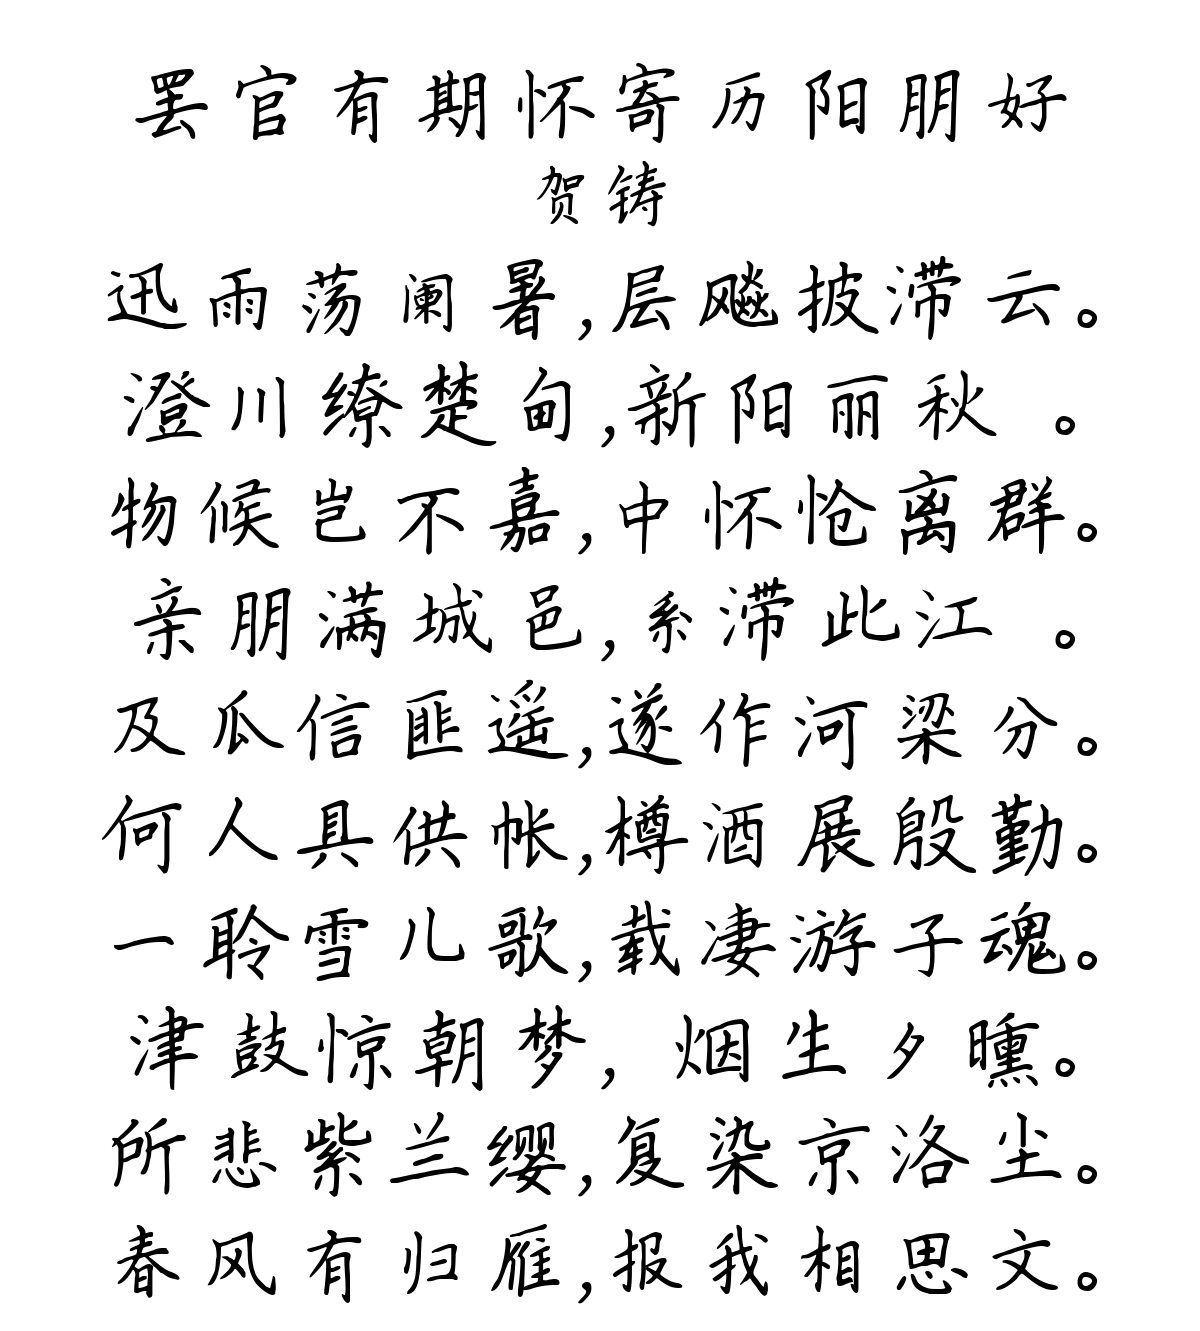 罢官有期怀寄历阳朋好
贺铸
迅雨荡阑暑,层飚披滞云。
澄川缭楚甸,新阳丽秋 。
物候岂不嘉,中怀怆离群。
亲朋满城邑,系滞此江 。
及瓜信匪遥,遂作河梁分。
何人具供帐,樽酒展殷勤。
一聆雪儿歌,载凄游子魂。
津鼓惊朝梦,烟生夕曛。
所悲紫兰缨,复染京洛尘。
春风有归雁,报我相思文。